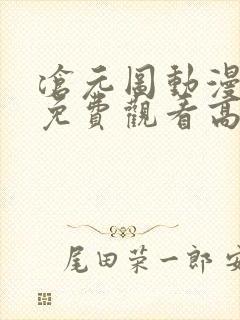 滄元圖動漫
免費觀看高
尾田荣一郎 安